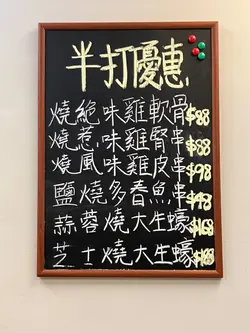 半打優惠
燒絕味雞軟骨 $88
燒惹味雞腎串 $88
燒風味雞皮串 $98
鹽燒多春魚串 $98
蒜蓉燒大生蠔 $168
芝士燒大生蠔 $168